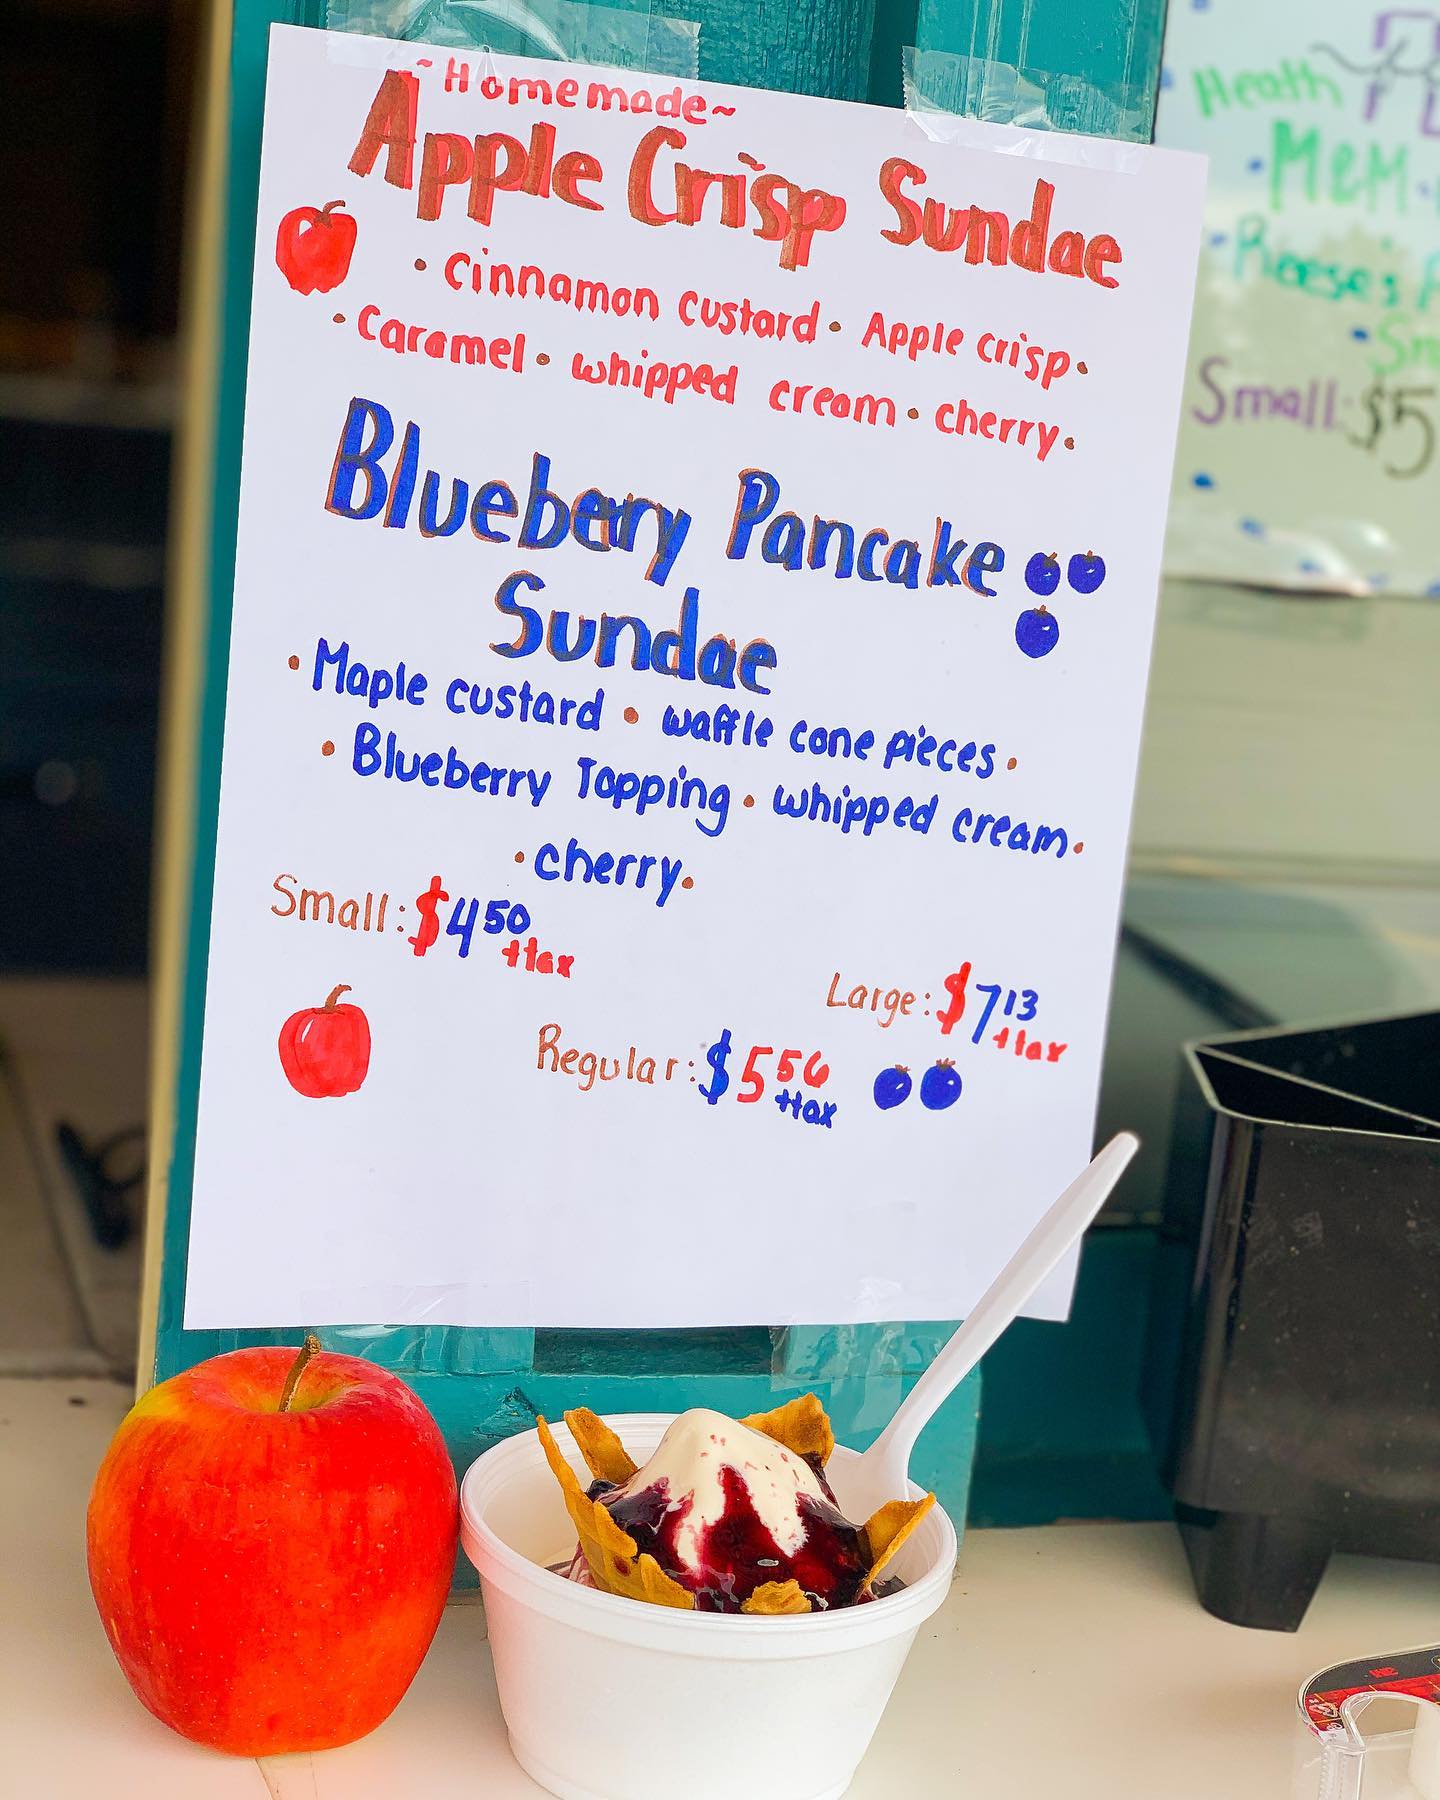 ~Homemade~
Apple Crisp Sundae
• Cinnamon custard • Apple crisp •
• Caramel • whipped cream • cherry •
Blueberry Pancake
Sundae
• Maple custard • waffle cone pieces •
• Blueberry Topping • whipped cream •
• cherry •
Small: $4 50
+tax
Large: $7 13
+tax
Regular: $5 56
+tax
Heath
• M&M •
• Reese's
Small: $5